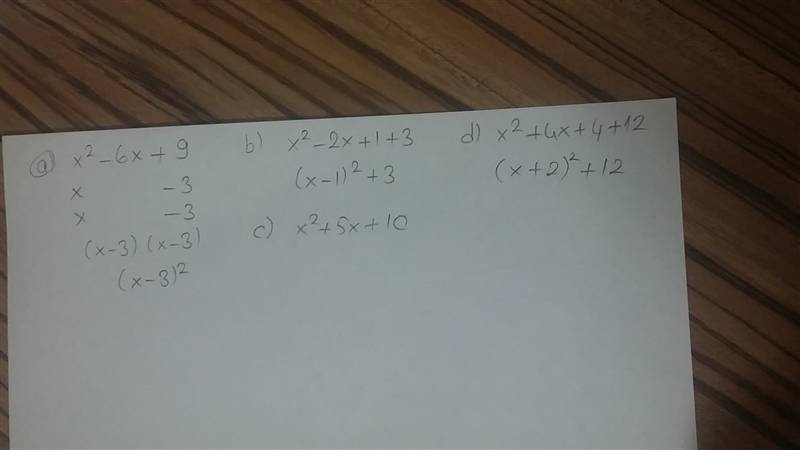 a) x² - 6x + 9
x -3
x -3
(x-3) (x-3)
(x-3)²
b) x² - 2x + 1 + 3
(x-1)² + 3
c) x² + 5x + 10
d) x² + 4x + 4 + 12
(x+2)² + 12